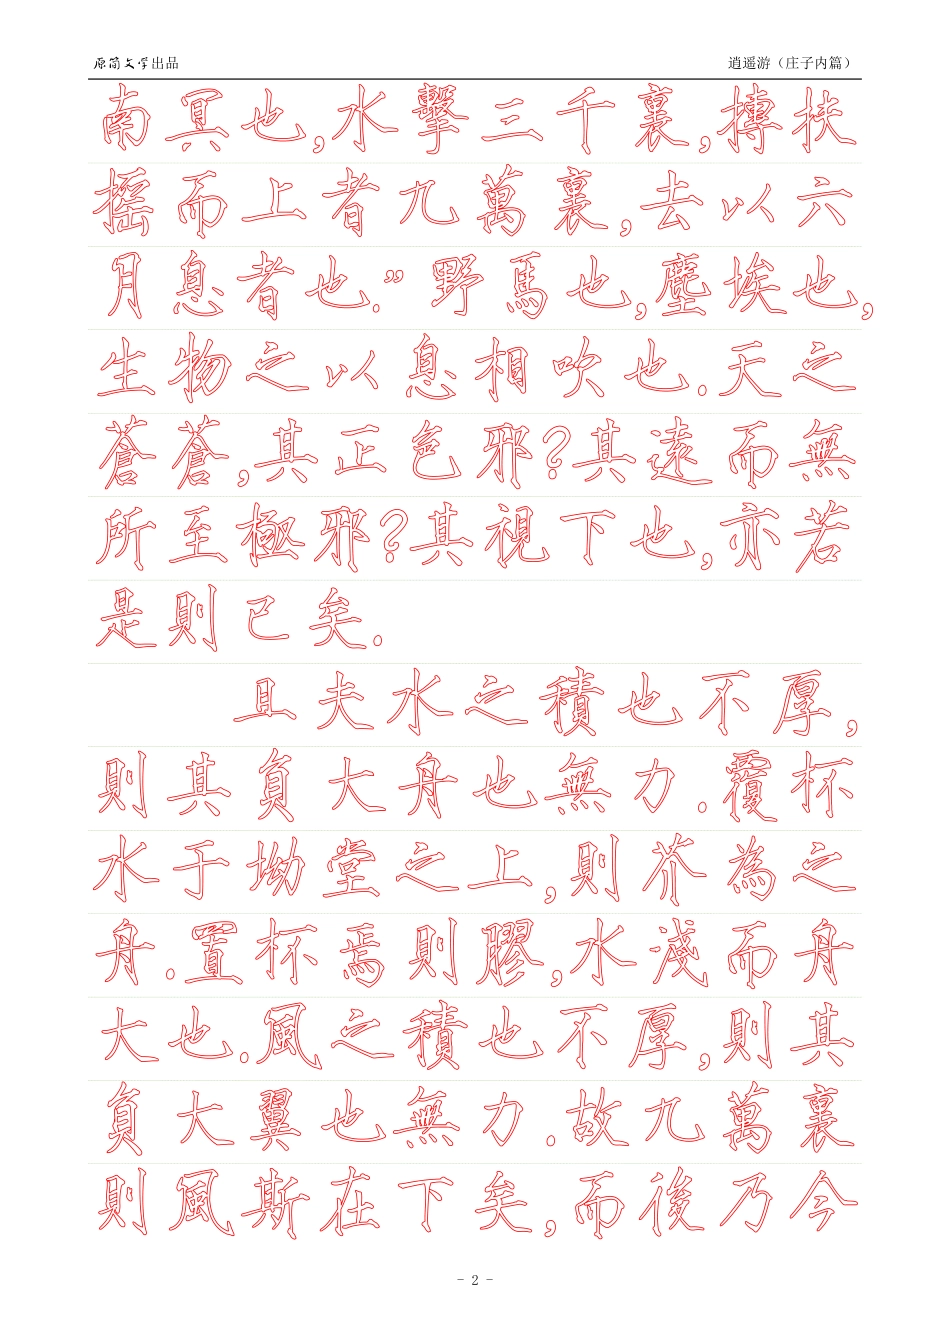 原简文学出品 逍遥游（庄子内篇）
南冥也,水擊三千裏,摶扶
摇而上者九萬裏,去以六
月息者也.”野馬也,塵埃也,
生物之以息相吹也.天之
蒼蒼,其正色邪?其遠而無
所至極邪?其視下也,亦若
是則已矣.
且夫水之積也不厚,
則其負大舟也無力.覆杯
水于坳堂之上,則芥為之
舟.置杯焉則膠,水淺而舟
大也.風之積也不厚,則其
負大翼也無力.故九萬裏
則風斯在下矣,而後乃今
- 2 -